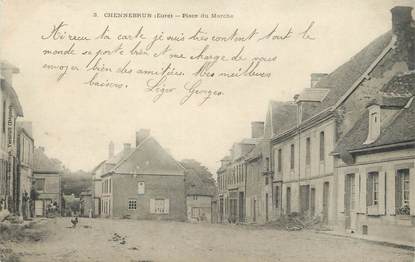 3. CHENNEBRUN (Eure) — Place du Marché
Ai reçu ta carte je suis très content tout le
monde se porte bien et me charge de vous
envoyer bien des amitiés. Mes meilleurs
baisers.
Léger Georges.